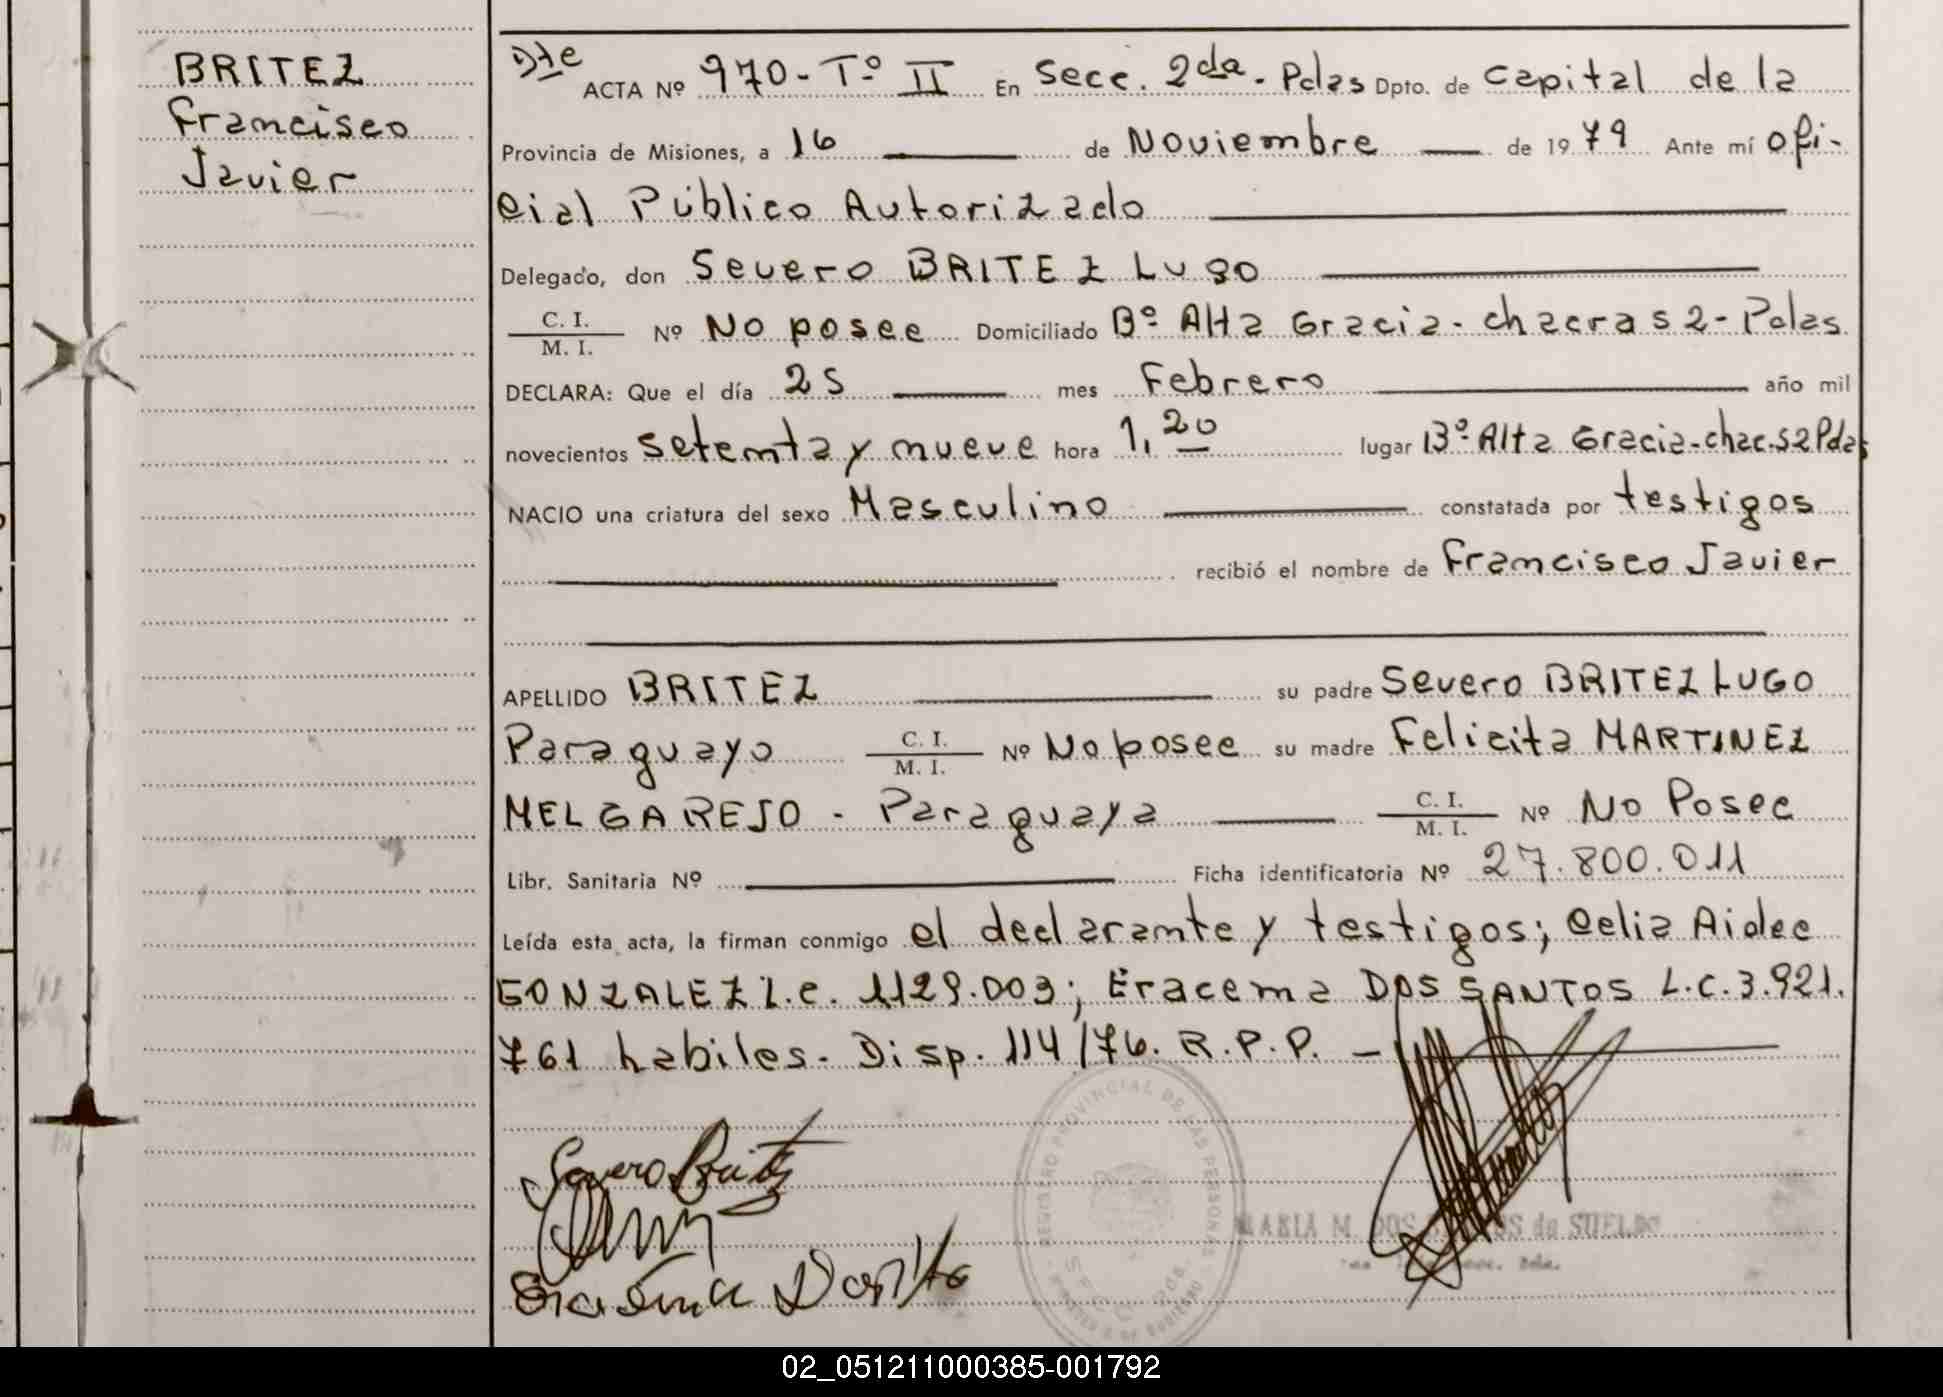 BRITEZ
Francisco
Javier
Dte
ACTA Nº 970-Tº II En Secc. 2da- Pdas Dpto. de Capital de la
Provincia de Misiones, a 16 de Noviembre de 1979 Ante mí Ofi-
cial Público Autorizado
Delegado, don Severo BRITEZ Lugo
C. I.
M. I. Nº No posee Domiciliado Bº Alta Gracia- chacra 52- Pdas
DECLARA: Que el día 25 mes Febrero año mil
novecientos setenta y nueve hora 1,20 lugar Bº Alta Gracia-chac.52Pdas
NACIO una criatura del sexo Masculino constatada por testigos
recibió el nombre de Francisco Javier
APELLIDO BRITEZ su padre Severo BRITEZ LUGO
Paraguayo C. I. M. I. Nº No posee su madre Felicita MARTINEZ
MELGAREJO - Paraguaya C. I. M. I. Nº No Posee
Libr. Sanitaria Nº Ficha identificatoria Nº 27.800.011
Leída esta acta, la firman conmigo el declarante y testigos; Celia Aidee
GONZALEZ L.c. 1129.003; Eracema DOS SANTOS L.C.3.921.
761 habiles. Disp. 114/76. R.P.P. -
Severo Britez
REGISTRO PROVINCIAL DE LAS PERSONAS
MARIA M. DOS SANTOS de SUELDO
02_051211000385-001792